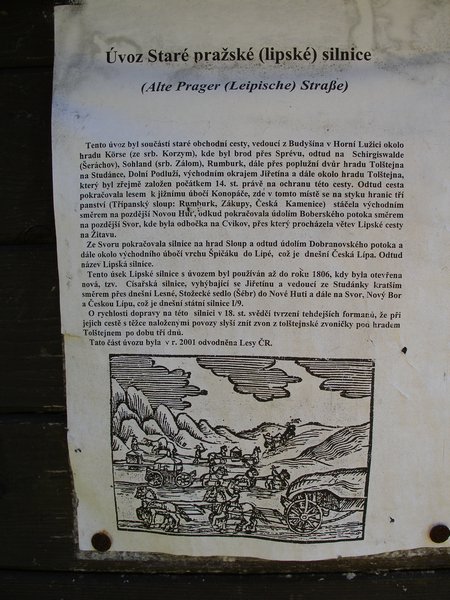 Úvoz Staré pražské (lipské) silnice
(Alte Prager (Leipische) Straße)
Tento úvoz byl součástí staré obchodní cesty, vedoucí z Budyšína v Horní Lužici okolo
hradu Körse (ze srb. Korzym), kde byl brod přes Sprévu, odtud na Schirgiswalde
(Šeráchov), Sohland (srb. Zálom), Rumburk, dále přes poplužní dvůr hradu Tolštejna
na Studánce, Dolní Podluží, východním okrajem Jiřetína a dále okolo hradu Tolštejna,
který byl zřejmě založen počátkem 14. st. právě na ochranu této cesty. Odtud cesta
pokračovala lesem k jižnímu úbočí Konopáče, zde v tomto místě se na styku hranic tří
panství (Třípanský sloup: Rumburk, Zákupy, Česká Kamenice) stáčela východním
směrem na pozdější Novou Huť, odkud pokračovala údolím Boberského potoka směrem
na pozdější Svor, kde byla odbočka na Cvikov, přes který procházela větev Lipské cesty
na Žitavu.
Ze Svoru pokračovala silnice na hrad Sloup a odtud údolím Dobranovského potoka a
dále okolo východního úbočí vrchu Špičáku do Lipé, což je dnešní Česká Lípa. Odtud
název Lipská silnice.
Tento úsek Lipské silnice s úvozem byl používán až do roku 1806, kdy byla otevřena
nová, tzv. Císařská silnice, vyhýbající se Jiřetínu a vedoucí ze Studánky kratším
směrem přes dnešní Lesné, Stožecké sedlo (Šébr) do Nové Hutí a dále na Svor, Nový Bor
a Českou Lípu, což je dnešní státní silnice I/9.
O rychlosti dopravy na této silnici v 18. st. svědčí tvrzení tehdejších formanů, že při
jejich cestě s těžce naloženými povozy slyší znít zvon z tolštejnské zvoničky pod hradem
Tolštejnem po dobu tří dnů.
Tato část úvozu byla v r. 2001 odvodněna Lesy ČR.